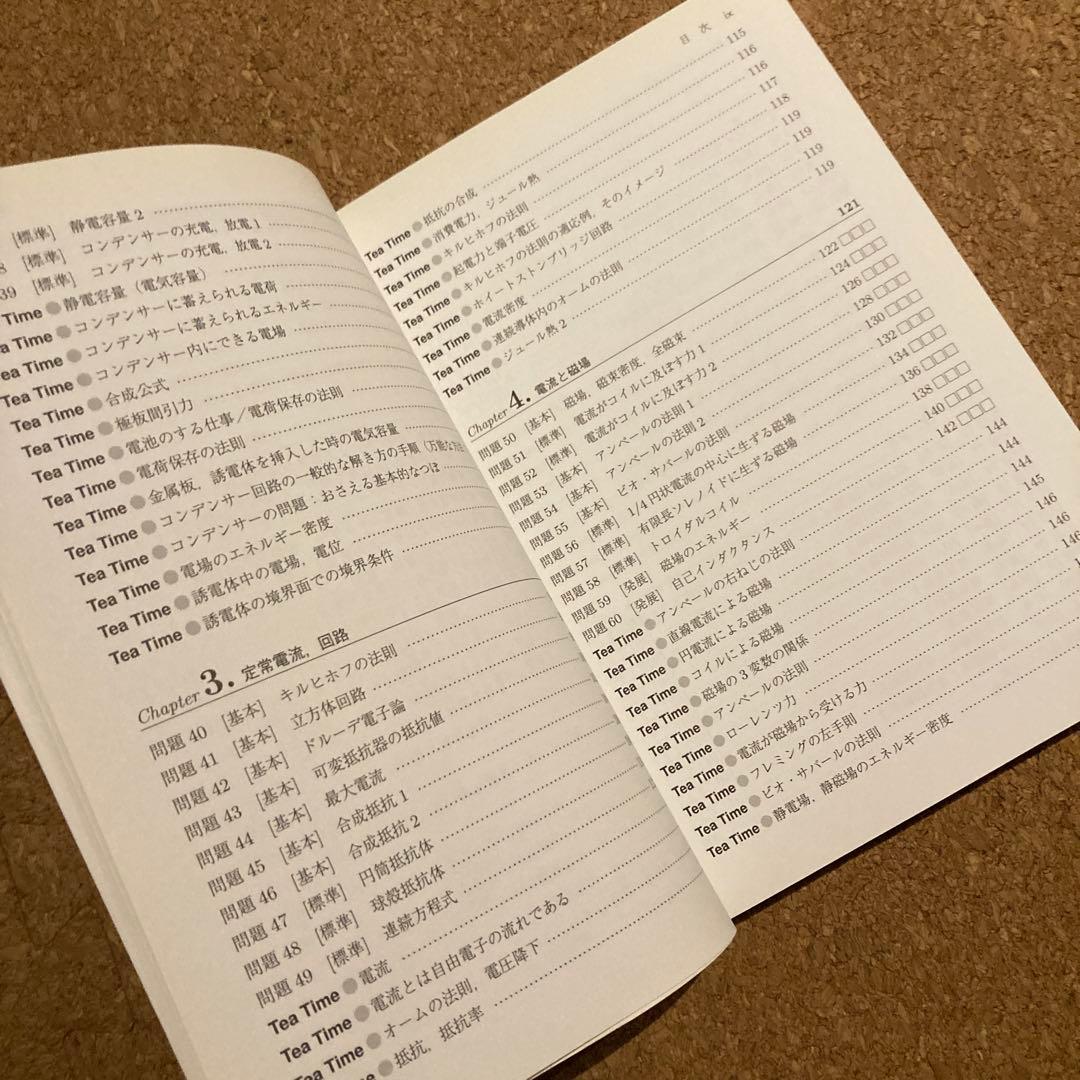 [標準] 静電容量2
8 [標準] コンデンサーの充電,放電1
39 [標準] コンデンサーの充電,放電2
Time ● 静電容量(電気容量)
a Time ● コンデンサーに蓄えられる電荷
ea Time ● コンデンサーに蓄えられるエネルギー
Tea Time ● コンデンサー内にできる電場
Tea Time ● 合成公式
Tea Time ● 極板間引力
Tea Time ● 電池のする仕事/電荷保存の法則
Tea Time ● 電荷保存の法則
Tea Time ● 金属板,誘電体を挿入した時の電気容量
Tea Time ● コンデンサー回路の一般的な解き方の手順(万能な方
Tea Time ● コンデンサーの問題:おさえる基本的なつぼ
Tea Time ● 電場のエネルギー密度
Tea Time ● 誘電体中の電場,電位
Tea Time ● 誘電体の境界面での境界条件
Chapter 3. 定常電流,回路
問題40 [基本] キルヒホフの法則
問題41 [基本] 立方体回路
問題42 [基本] ドルーデ電子論
問題43 [基本] 可変抵抗器の抵抗値
問題44 [基本] 最大電流
問題45 [基本] 合成抵抗1
問題46 [基本] 合成抵抗2
問題47 [標準] 円筒抵抗体
問題48 [標準] 球殻抵抗体
問題49 [標準] 連続方程式
Tea Time ● 電流
Tea Time ● 電流とは自由電子の流れである
Tea Time ● オームの法則,電圧降下
Tea Time ● 抵抗,抵抗率
目次 ix
Tea Time ● 抵抗の合成 115
Tea Time ● 消費電力,ジュール熱 116
Tea Time ● キルヒホフの法則 116
Tea Time ● 起電力と端子電圧 117
Tea Time ● キルヒホフの法則の適応例,そのイメージ 118
Tea Time ● ホイートストンブリッジ回路 119
Tea Time ● 電流密度 119
Tea Time ● 連続導体内のオームの法則 119
Tea Time ● ジュール熱2 119
Chapter 4. 電流と磁場 121
問題50 [基本] 磁場,磁束密度,全磁束 122 □□□
問題51 [標準] 電流がコイルに及ぼす力1 124 □□□
問題52 [標準] 電流がコイルに及ぼす力2 126 □□□
問題53 [基本] アンペールの法則1 128 □□□
問題54 [基本] アンペールの法則2 130 □□□
問題55 [基本] ビオ・サバールの法則 132 □□□
問題56 [標準] 1/4円状電流の中心に生ずる磁場 134 □□□
問題57 [標準] 有限長ソレノイドに生ずる磁場 136 □□□
問題58 [標準] トロイダルコイル 138 □□□
問題59 [発展] 磁場のエネルギー 140 □□□
問題60 [発展] 自己インダクタンス 142 □□□
Tea Time ● アンペールの右ねじの法則 144
Tea Time ● 直線電流による磁場 144
Tea Time ● 円電流による磁場 144
Tea Time ● コイルによる磁場 145
Tea Time ● 磁場の3変数の関係 146
Tea Time ● アンペールの法則 146
Tea Time ● ローレンツ力 146
Tea Time ● 電流が磁場から受ける力
Tea Time ● フレミングの左手則
Tea Time ● ビオ・サバールの法則
Tea Time ● 静電場,静磁場のエネルギー密度